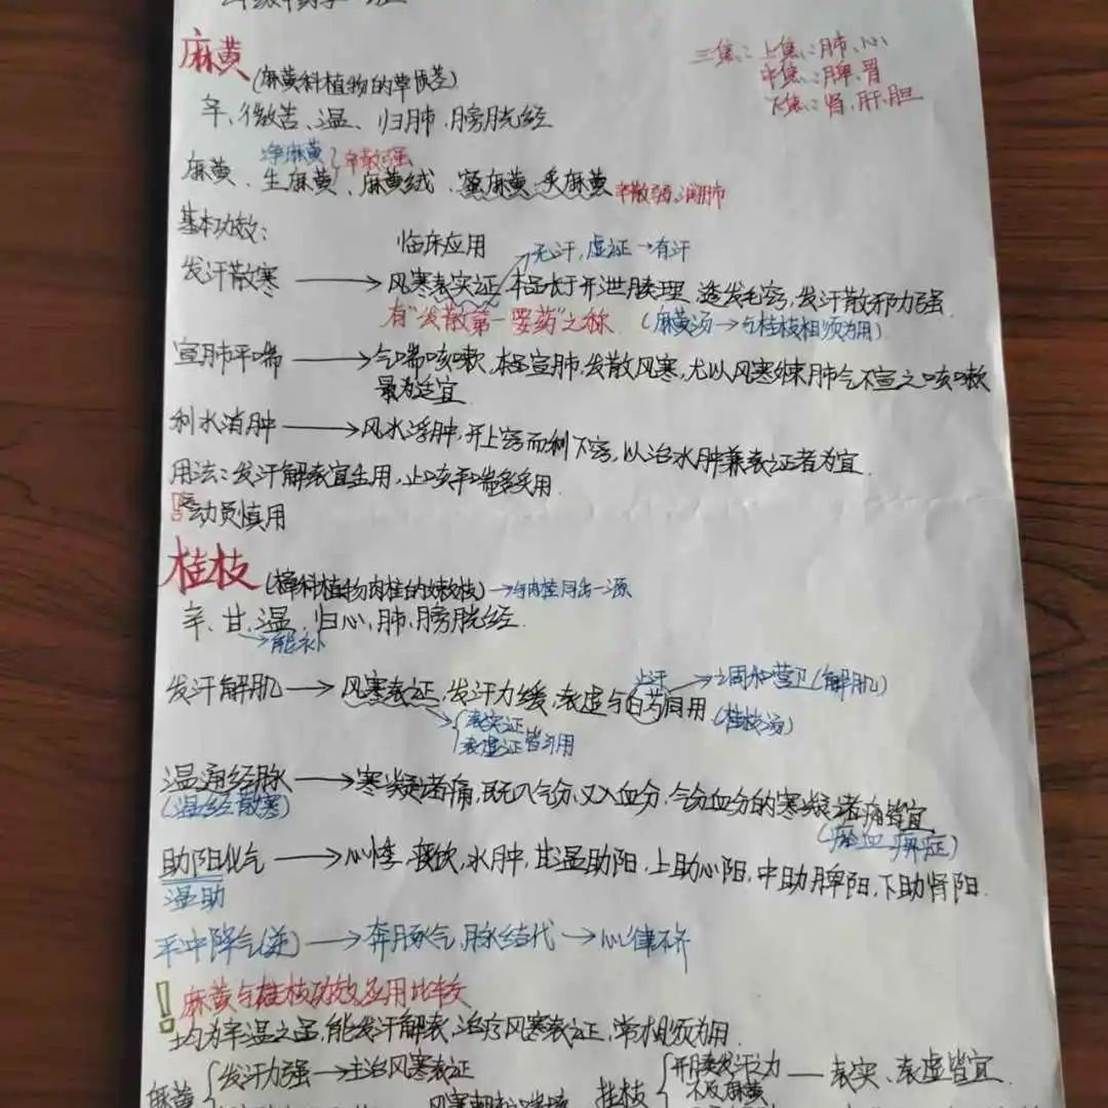 麻黄 (麻黄科植物的草质茎)
三焦：上焦：肺、心
中焦：脾、胃
下焦：肾、肝、胆
辛、微苦、温、归肺、膀胱经
净麻黄 辛散强
麻黄、生麻黄、麻黄绒、蜜麻黄、炙麻黄 辛散弱，润肺
基本功效：
临床应用 无汗，虚证→有汗
发汗散寒 → 风寒表实证，本品长于开泄腠理，透发毛窍，发汗散邪力强
有“发散第一要药”之称 (麻黄汤→与桂枝相须为用)
宣肺平喘 → 气喘咳嗽，本品宣肺，发散风寒，尤以风寒外束肺气不宣之咳嗽
最为适宜
利水消肿 → 风水浮肿，开上窍而利下窍，以治水肿兼表证者为宜
用法：发汗解表宜生用，止咳平喘多炙用
运动员慎用
桂枝 (樟科植物肉桂的嫩枝) →与肉桂同出一源
辛、甘、温，归心、肺、膀胱经
→能补
止汗 →调和营卫(解肌)
发汗解肌 → 风寒表证，发汗力缓，表虚与白芍同用 (桂枝汤)
表实证
表虚证皆可用
温通经脉 → 寒凝诸痛，既入气分，又入血分，气分血分的寒凝诸痛皆宜
(温经散寒) (瘀血痹症)
助阳化气 → 心悸、痰饮、水肿，甘温助阳，上助心阳，中助脾阳，下助肾阳
温助
平冲降气(逆) → 奔豚气，脉结代 → 心律不齐
! 麻黄与桂枝功效及应用比较
均为辛温之品，能发汗解表，治疗风寒表证，常相须为用
麻黄 发汗力强→主治风寒表证 桂枝 开腠发汗之力 — 表实、表虚皆宜
不及麻黄